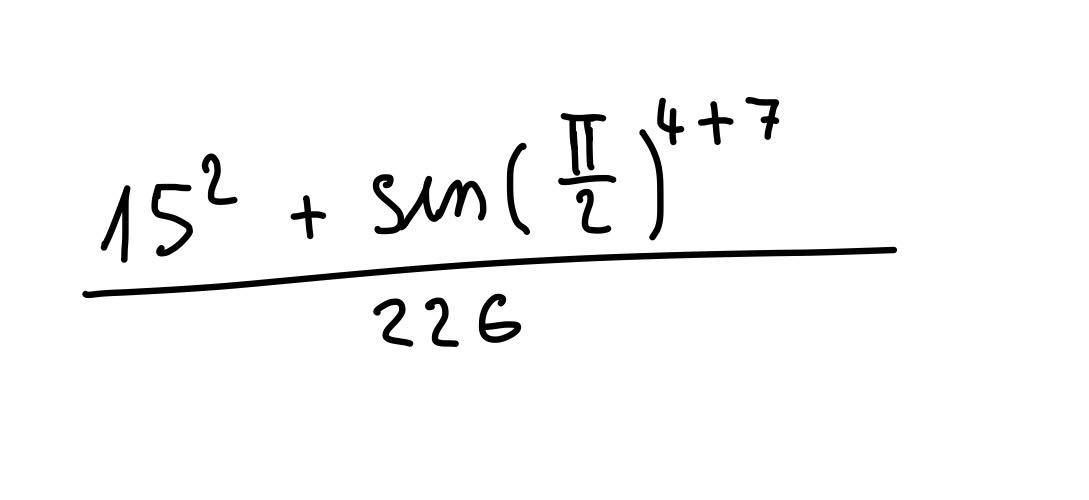 15² + sin(π/2)⁴⁺⁷
226